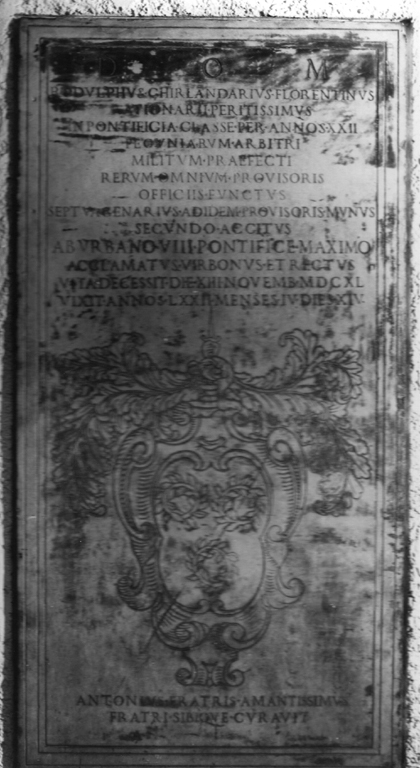 D O M
RODVLPHVS·GHIRLANDARIVS·FLORENTINVS
RATIONARII·PERITISSIMVS
IN·PONTIFICIA·CLASSE·PER·ANNOS·XXII
PECVNIARVM·ARBITRI
MILITVM·PRAEFECTI
RERVM·OMNIVM·PROVISORIS
OFFICIIS·FVNCTVS
SEPTVAGENARIVS·AD·IDEM·PROVISORIS·MVNVS
SECVNDO·ACCITVS
AB·VRBANO·VIII·PONTIFICE·MAXIMO
ACCLAMATVS·VIR·BONVS·ET·RECTVS
VITA·DECESSIT·DIE·XIII·NOVEMB·MDCXL
VIXIT·ANNOS·LXXII·MENSES·IV·DIES·XIV
ANTONIVS·FRATRIS·AMANTISSIMVS
FRATRI·SIBIQVE·CVRAVIT